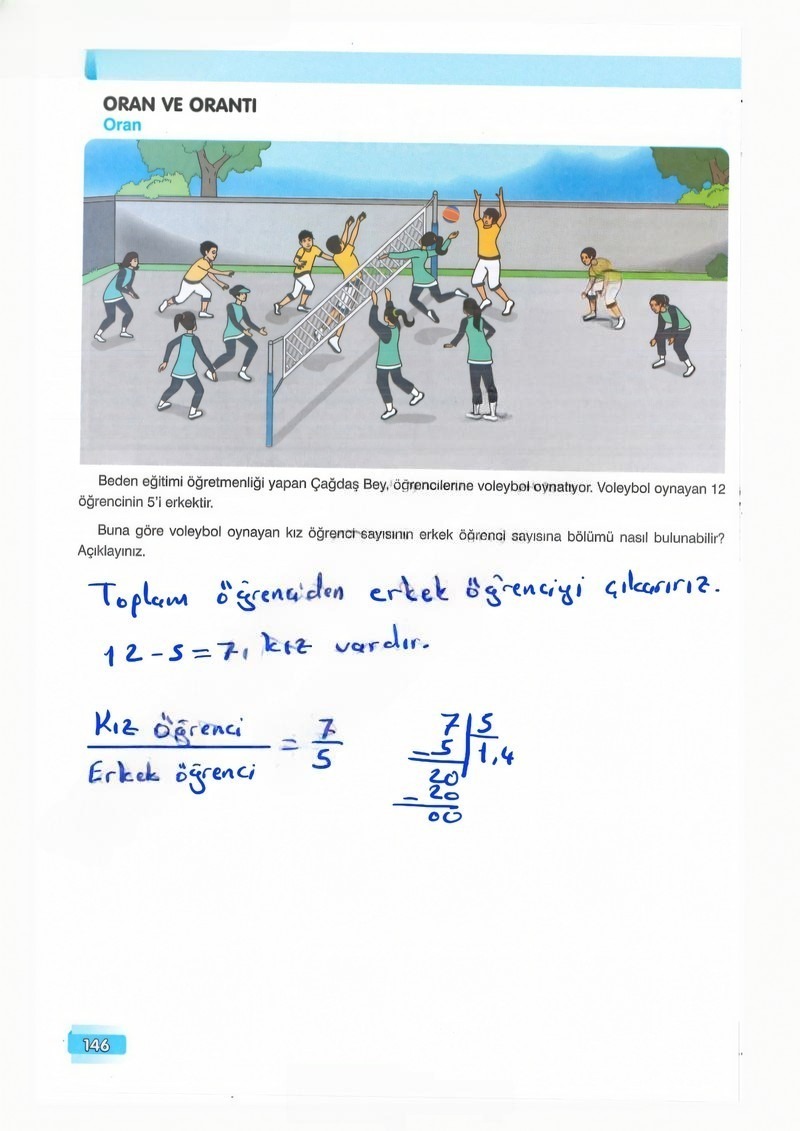 ORAN VE ORANTI
Oran
Beden eğitimi öğretmenliği yapan Çağdaş Bey, öğrencilerine voleybol oynatıyor. Voleybol oynayan 12
öğrencinin 5'i erkektir.
Buna göre voleybol oynayan kız öğrenci sayısının erkek öğrenci sayısına bölümü nasıl bulunabilir?
Açıklayınız.
Toplam öğrenciden erkek öğrenciyi çıkarırız.
12-5=7, kız vardır.
Kız öğrenci
Erkek öğrenci
= 7
5
7 5
-5 1,4
20
- 20
00
146